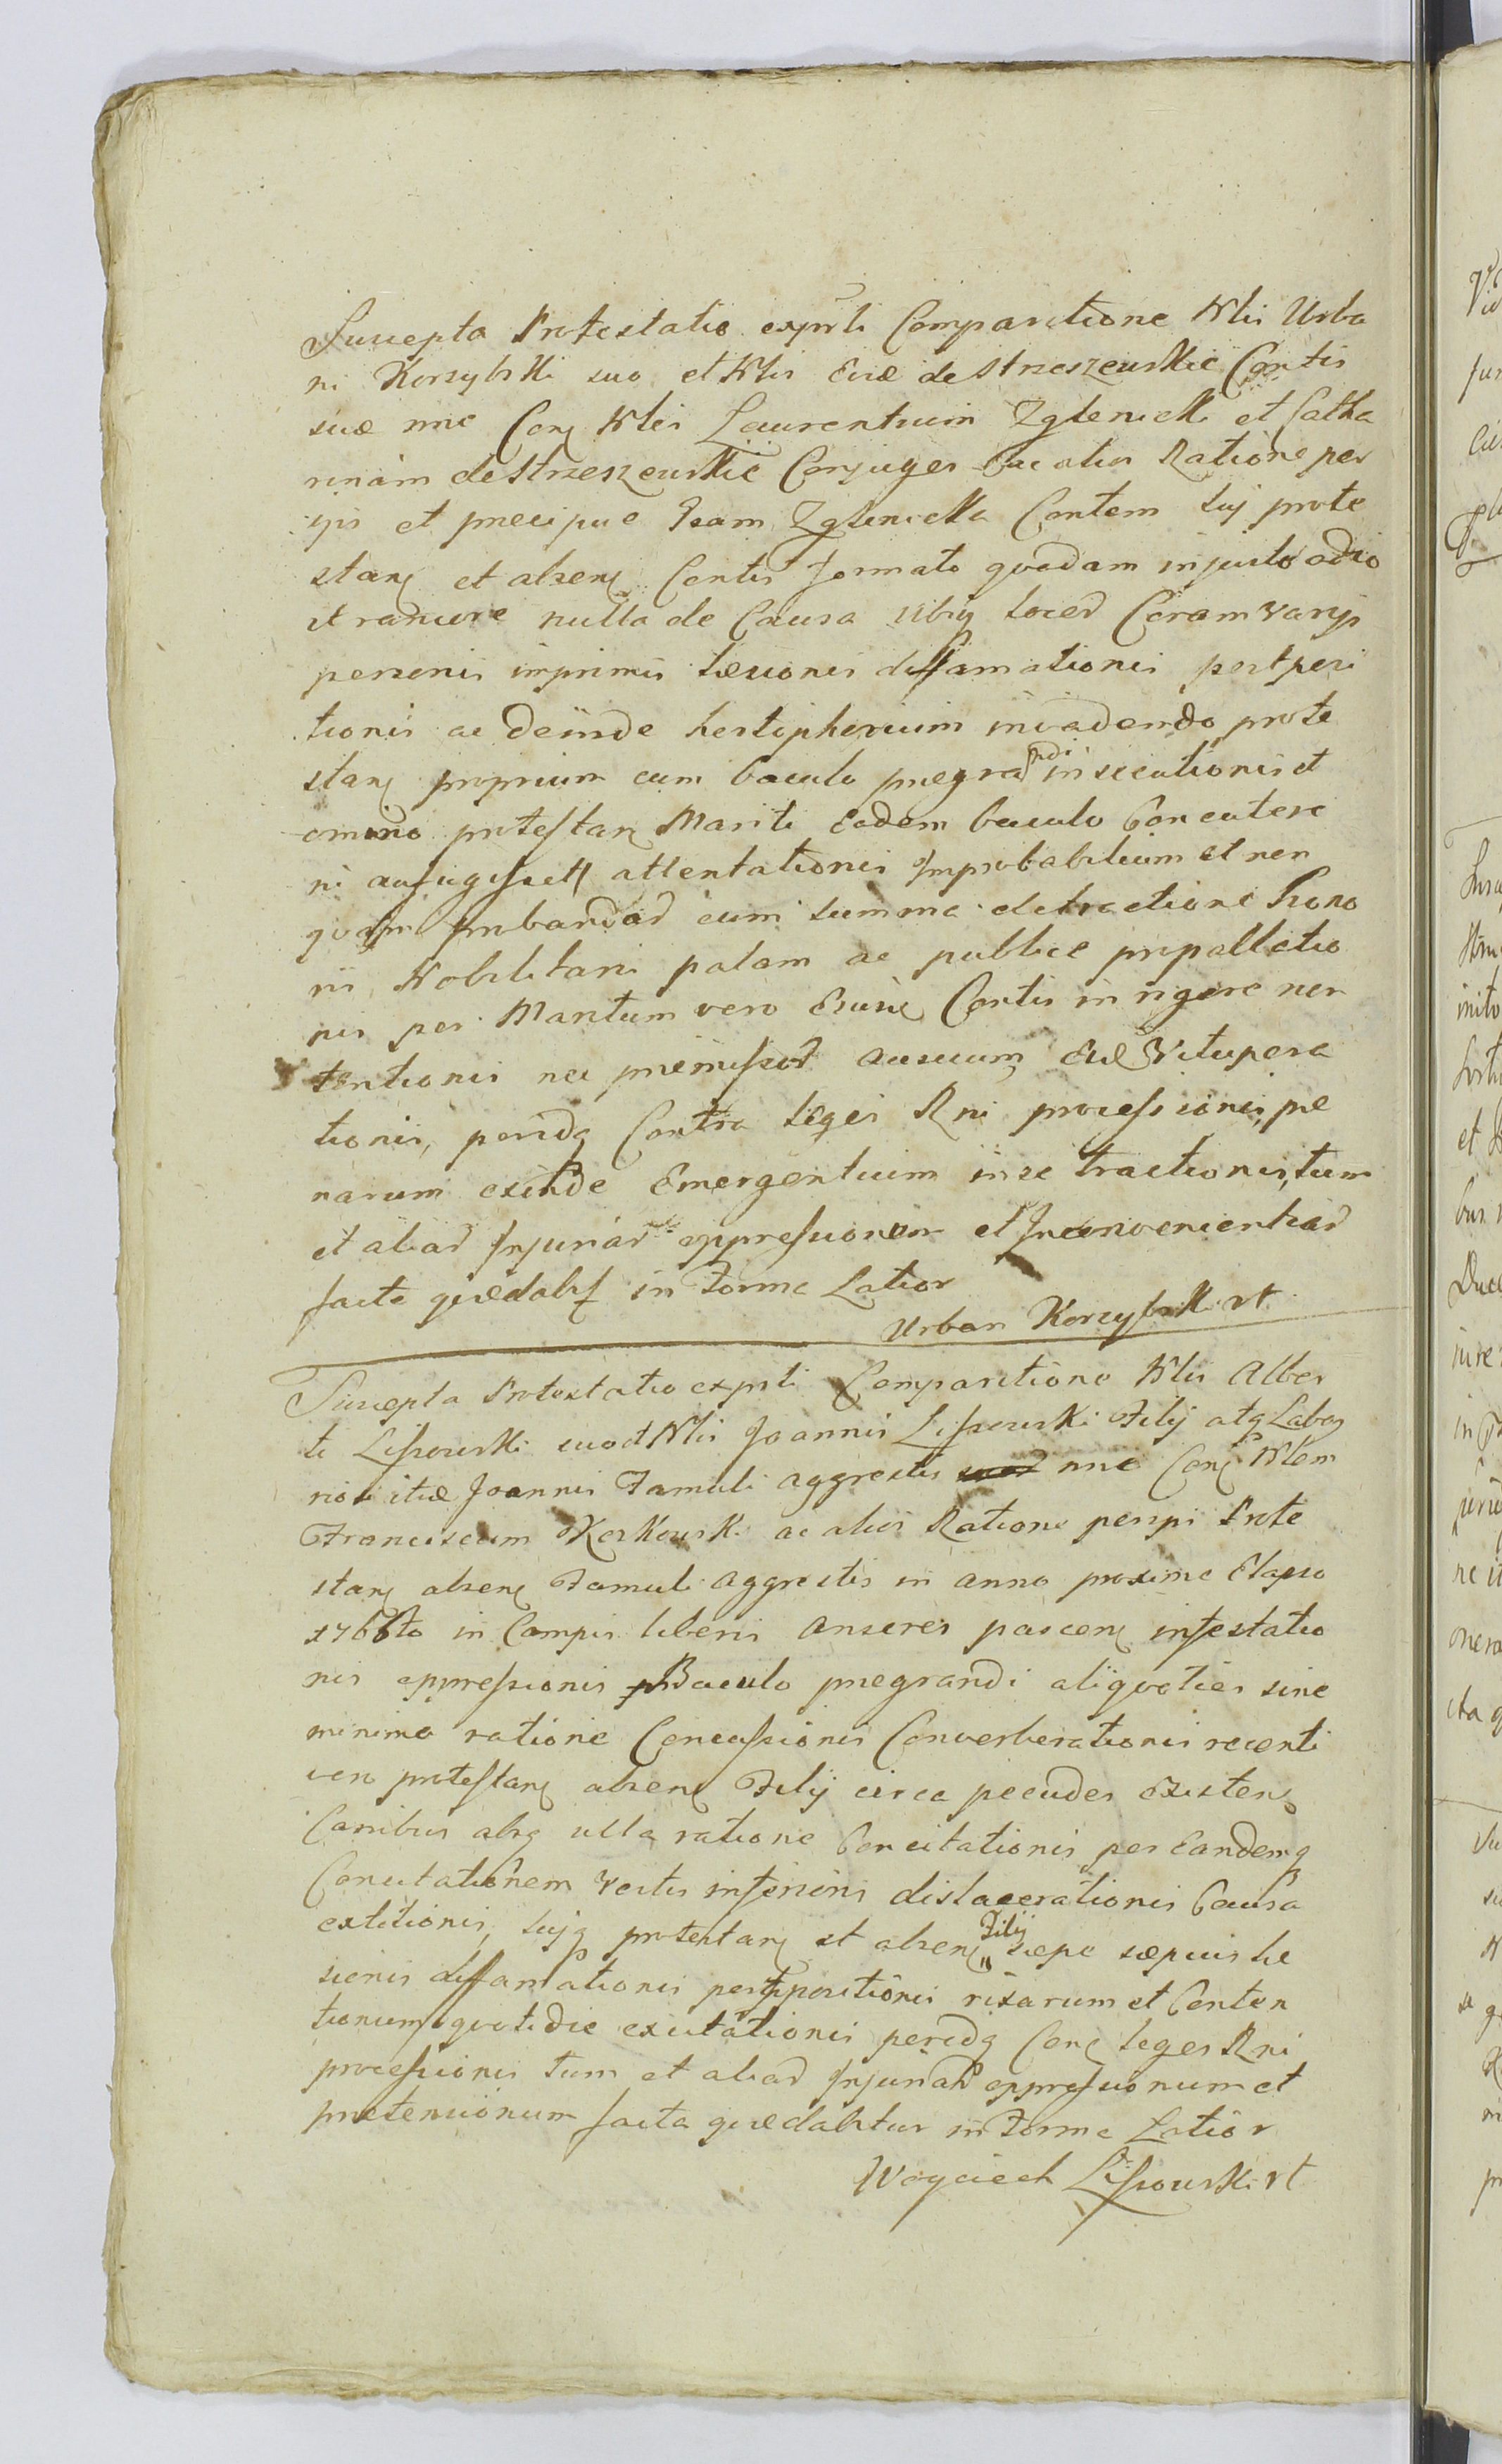 Suscepta Protestatio exprsti Comparitione Nlis Urba
ni Korzybski suo et Nlis Evæ de Strzeszewskie Contis
suæ nne Con Nles Laurentium Zglenicki et Catha
rinam de Strzeszewskie Conjuges ac alios Ratione per
ipsis et precipue Ipsam Zglenicka Contem suj prote
stan et absen Contis formato quodam injusto odio
et rancore nulla de Causa ubiq locor Coram varijs
personis imprimis læsionis diffamationis postposi
tionis ac deinde hostiphorium invadendo prote
stan proprium cum baculo pregrandi insecutionis et
omnino protestan Mariti Eodem baculo Concutere
ni aufugisset attentationis Improbabilium et non
quam probandor cum summa detractione Hono
ris Nobilitaris palam ac publice propallatio
nis per Maritum vero Ejusd Contis in rigore non
tentionis nec premissor ausuum Evæ Vitupera
tionis, peridq Contra leges Rni processionis, pæ
narum exinde Emergentium in se tractionis, tum
et aliar Injuriar oppressionum et Inconvenientiar
facta quædabf in Forma Latior
Urban Korzybski rt
Suscepta Protestatio exprsti Comparitione Nlis Alber
ti Lissowski suo et Nlis Joannis Lissowski Filij atq Labo
riositæ Joannis Famuli aggrestis nne Con Nlem
Franciscum Koskowski ac alios Ratione per ipsi Prote
stan absen Famuli aggrestis in anno proxime Elapso
1766to in Campis liberis anseres pascen infestatio
nis oppressionis Baculo pregrandi aliquoties sine
minima ratione Concussionis Converberationis recenti
vero protestan absen Filij circa pecudes existen
Canibus absq ulla ratione Concitationis per Eandemq
Concitationem Vestis inferioris dislacerationis Causa
extitionis, sujq protestan et absen Filij sæpe sæpius læ
sionis diffamationis postpositionis rixarum et Conten
tionum quotidie excitationis peridq Con leges Rni
processionis tum et aliar Injuriar oppressionum et
pretensionum facta quædabitur in Forma Latior
Woyciech Lissowski rt